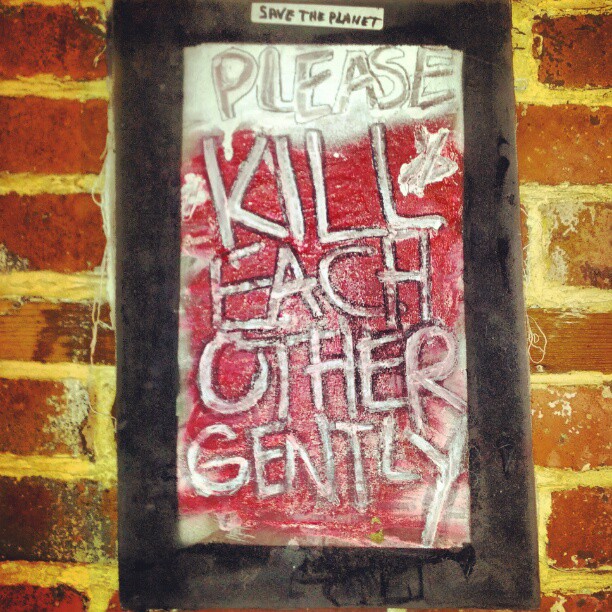 SAVE THE PLANET
PLEASE
KILL
EACH
OTHER
GENTLY